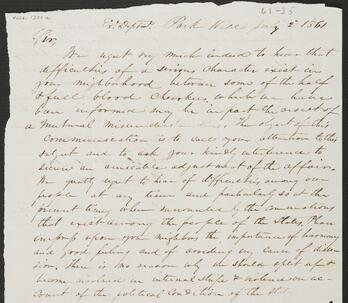 61-35
Ex Dept. Park Hill July 2d 1861
Sir,
We regret very much indeed to hear that
difficulties of a serious character exist in
your neighborhood between some of the half
& full blood Cherokees, which we have
been informed may be in part the result of
a mutual misunderstanding. The object of this
communication is to call your attention to this
subject and to ask your kindly interference to
secure an amicable adjustment of the affairs.
We greatly regret to hear of difficulties among our
people at any time and particularly so at the
present time when surrounded by the commotions
that exist among the people of the States, Then
impress upon your neighbors the importance of harmony
and good feeling and of avoiding any cause of dissen
sion, There is no reason why we should split up &
become involved in internal strife & violence on ac-
count of the political condition of the States